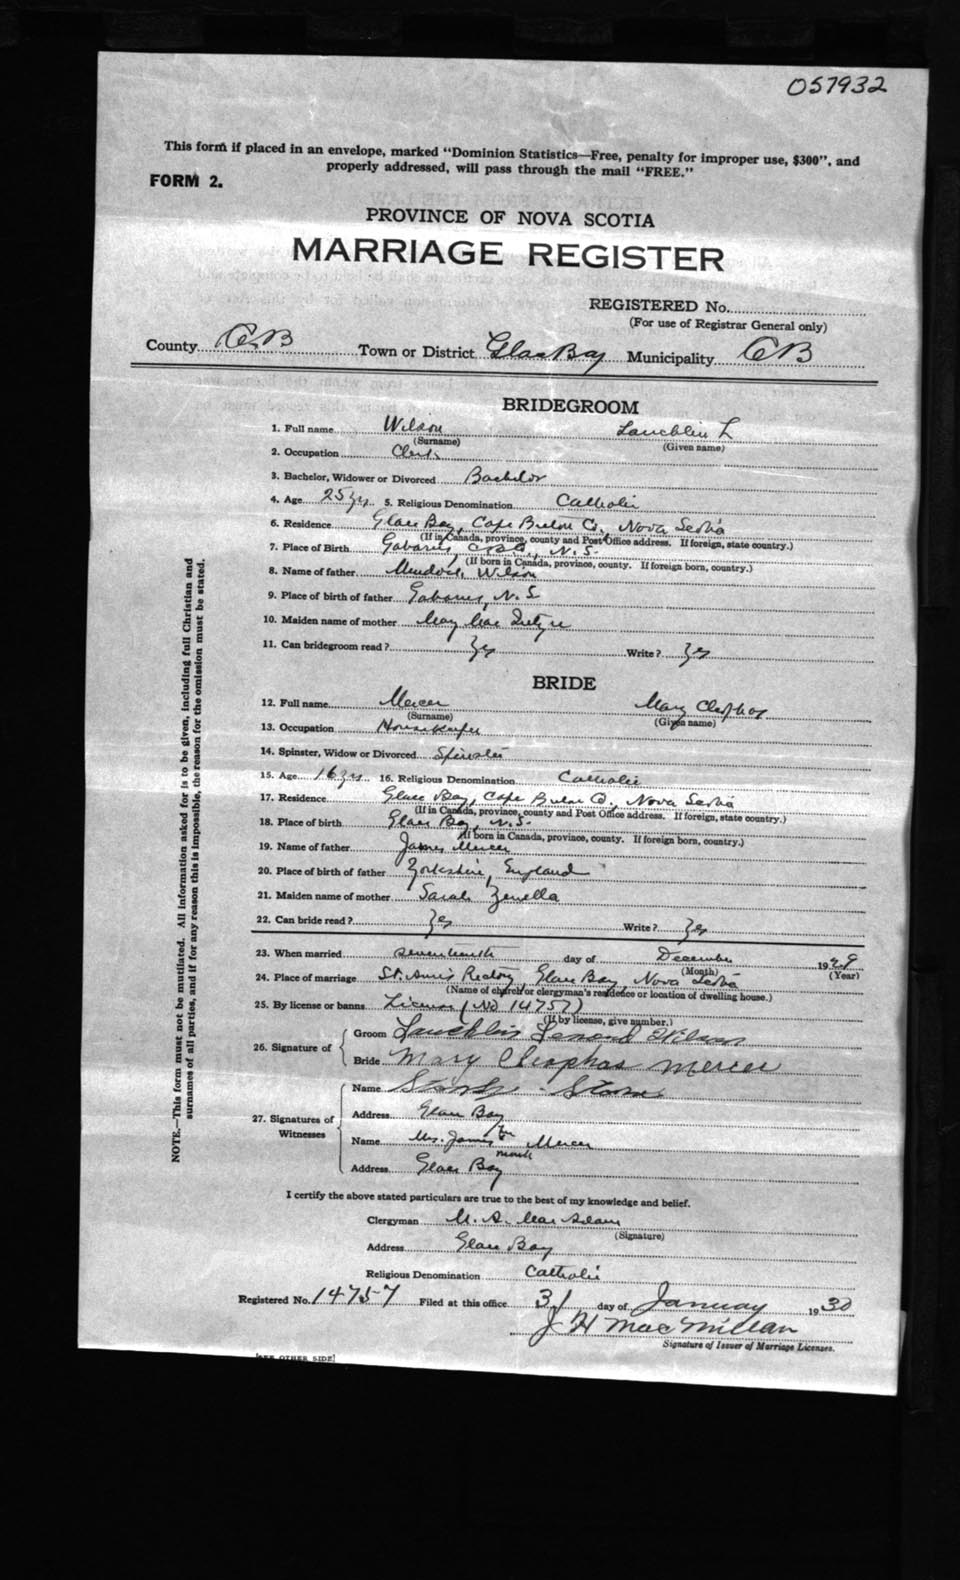 057932
This form if placed in an envelope, marked "Dominion Statistics—Free, penalty for improper use, $300", and
properly addressed, will pass through the mail "FREE."
FORM 2.
PROVINCE OF NOVA SCOTIA
MARRIAGE REGISTER
REGISTERED No.
(For use of Registrar General only)
County C.B Town or District Glace Bay Municipality C B
BRIDEGROOM
1. Full name Wilson Lauchlin L
(Surname) (Given name)
2. Occupation Clerk
3. Bachelor, Widower or Divorced Bachelor
4. Age 25 yrs. 5. Religious Denomination Catholic
6. Residence Glace Bay, Cape Breton Co., Nova Scotia
(If in Canada, province, county and Post Office address. If foreign, state country.)
7. Place of Birth Gabarus, N.S.
(If born in Canada, province, county. If foreign born, country.)
8. Name of father Murdock Wilson
9. Place of birth of father Gabarus, N.S.
10. Maiden name of mother Mary Mac Intyre
11. Can bridegroom read? Yes Write? Yes
BRIDE
12. Full name Mercer Mary Cleophas
(Surname) (Given name)
13. Occupation Housekeeper
14. Spinster, Widow or Divorced Spinster
15. Age 16 yrs 16. Religious Denomination Catholic
17. Residence Glace Bay, Cape Breton Co., Nova Scotia
(If in Canada, province, county and Post Office address. If foreign, state country.)
18. Place of birth Glace Bay, N.S.
(If born in Canada, province, county. If foreign born, country.)
19. Name of father James Mercer
20. Place of birth of father Yorkshire, England
21. Maiden name of mother Sarah
22. Can bride read? Yes Write? Yes
23. When married seventeenth day of December 1929
(Month) (Year)
24. Place of marriage St. Ann's Rectory, Glace Bay, Nova Scotia
(Name of church or clergyman's residence or location of dwelling house.)
25. By license or banns License (No 14757)
(If by license, give number.)
26. Signature of Groom Lauchlin Wilson
Bride Mary Cleophas Mercer
27. Signatures of Witnesses
Name Stone
Address Glace Bay
Name Mrs. James her Mercer
mark
Address Glace Bay
I certify the above stated particulars are true to the best of my knowledge and belief.
Clergyman M. A. Mac Adam
(Signature)
Address Glace Bay
Religious Denomination Catholic
Registered No. 14757 Filed at this office 31 day of January 1930
J H MacMillan
Signature of Issuer of Marriage Licenses.
[SEE OTHER SIDE]
NOTE.—This form must not be mutilated. All information asked for is to be given, including full Christian and
surnames of all parties, and if for any reason this is impossible, the reason for the omission must be stated.